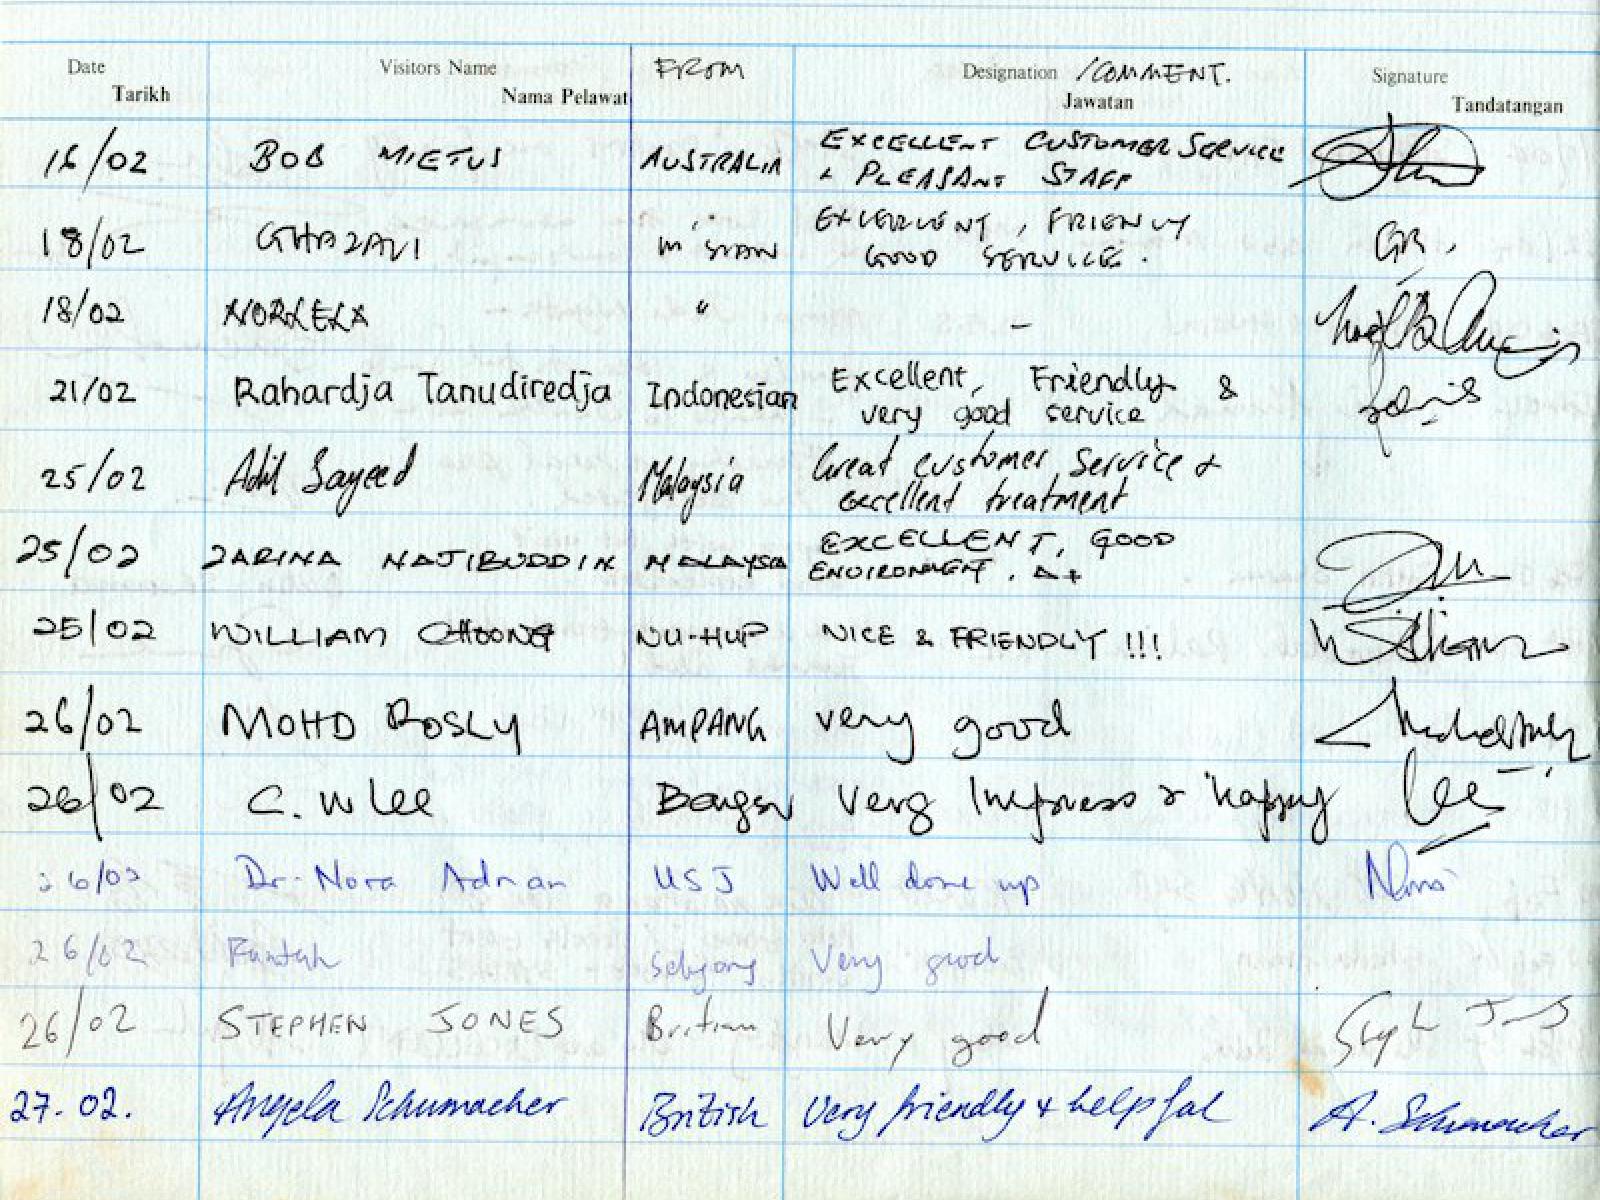 Date Visitors Name FROM Designation /COMMENT. Signature
Tarikh Nama Pelawat Jawatan Tandatangan
16/02 BOB MIETUS AUSTRALIA EXCELLENT CUSTOMER SERVICE
& PLEASANT STAFF
18/02 GHAZALI M'SIAN EXCELLENT, FRIENLY GR.
GOOD SERVICE.
18/02 NORLELA " -
21/02 Rahardja Tanudiredja Indonesian Excellent, Friendly &
very good service
25/02 Adil Sayeed Malaysia Great customer service &
excellent treatment
25/02 ZARINA NAJIBUDDIN MALAYSIA EXCELLENT, GOOD
ENVIRONMENT. A+
25/02 WILLIAM CHOONG NU-HUP NICE & FRIENDLY !!! William
26/02 MOHD ROSLY AMPANG very good
26/02 C. W Lee Bangsar Very Impress & happy Lee
26/02 Dr. Nora Adnan USJ Well done up Nora
26/02 Very good
26/02 STEPHEN JONES Britian Very good Steph Jones
27.02. Angela Schumacher British Very friendly & helpful A. Schumacher